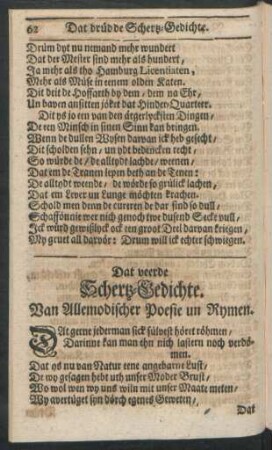 62 Dat drüdde Schertz-Gedichte.
Drüm dyt nu nemand mehr wundert
Dat der Meister sind mehr als hundert,
Ja mehr als tho Hamburg Licentiaten,
Mehr als Müse in eenem olden Katen.
Dit deit de Hoffarth by dem, dem na Ehr,
Un baven an sitten jöket dat Hinder-Quarteer.
Dit ys jo een van den ärgerlycksten Dingen,
De een Minsch in sinen Sinn kan bringen.
Wenn de dullen Wysen darvan ick heb gesecht,
Dit scholden sehn, un ydt bedencken recht,
So würde de, de alltydt lachde, weenen,
Dat em de Tranen lepen beth an de Tenen:
De alltydt weende, de wörde so grülick lachen,
Dat em Lever un Lunge möchten krachen.
Schold men denn de cureren de dar sind so dull,
Schaffönnie wer nich genoch twe dusend Secke vull,
Ick würd gewißlyck ock een groot Deel darvan kriegen,
My gruet all darvör: Drum will ick echter schwiegen.
Dat veerde
Schertz-Gedichte.
Van Allemodischer Poesie un Rymen.
Dat gerne jederman sick sülvest höret röhmen,
Darinne kan man ehn nich lastern noch verdömen.
Dat ys nu van Natur eene angebarne Lust,
De wy gesagen hebt uth unser Moder Brust,
Wy wol wen wy uns wiln mit unser Maate meten,
Wy avertüget syn dörch egenes Geweten,
Dat